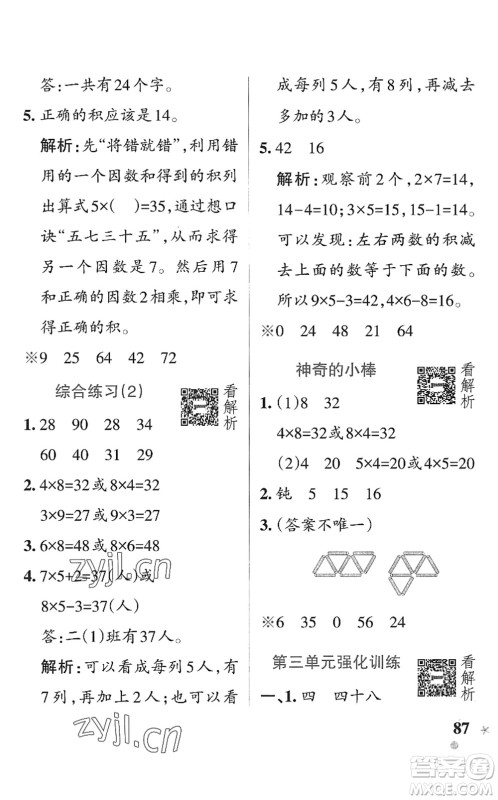 答:一共有24个字。
5. 正确的积应该是14。
解析:先“将错就错”,利用错
用的一个因数和得到的积列
出算式5×(　)=35,通过想口
诀“五七三十五”,从而求得另
一个因数是7。然后用7和
正确的因数2相乘,即可求出
正确的积。
※9　25　64　42　72
综合练习(2)
看解析
1. 28　90　28　34
60　40　31　29
2. 4×8=32或8×4=32
3×9=27或9×3=27
3. 6×8=48或8×6=48
4. 7×5+2=37(人)或
8×5-3=37(人)
答:二(1)班有37人。
解析:可以看成每列5人,有
7列,再加2人;也可以看
zyjl.cn
zyjl.cn
成每列5人,有8列,再减去
多加的3人。
5. 42　16
解析:观察前2个,2×7=14,
14-4=10;3×5=15,15-1=14。
可以发现:左右两数的积减
去上面的数等于下面的数。
所以9×5-3=42,4×6-8=16。
※0　24　48　21　64
神奇的小棒
看解析
1. (1)8　32
4×8=32或8×4=32
(2)4　20　5×4=20
2. 钝　5　15　16
3. (答案不唯一)
※6　35　0　56　24
第三单元强化训练
看解析
一、1. 四　四十八
87
答案圈
MXQE.COM